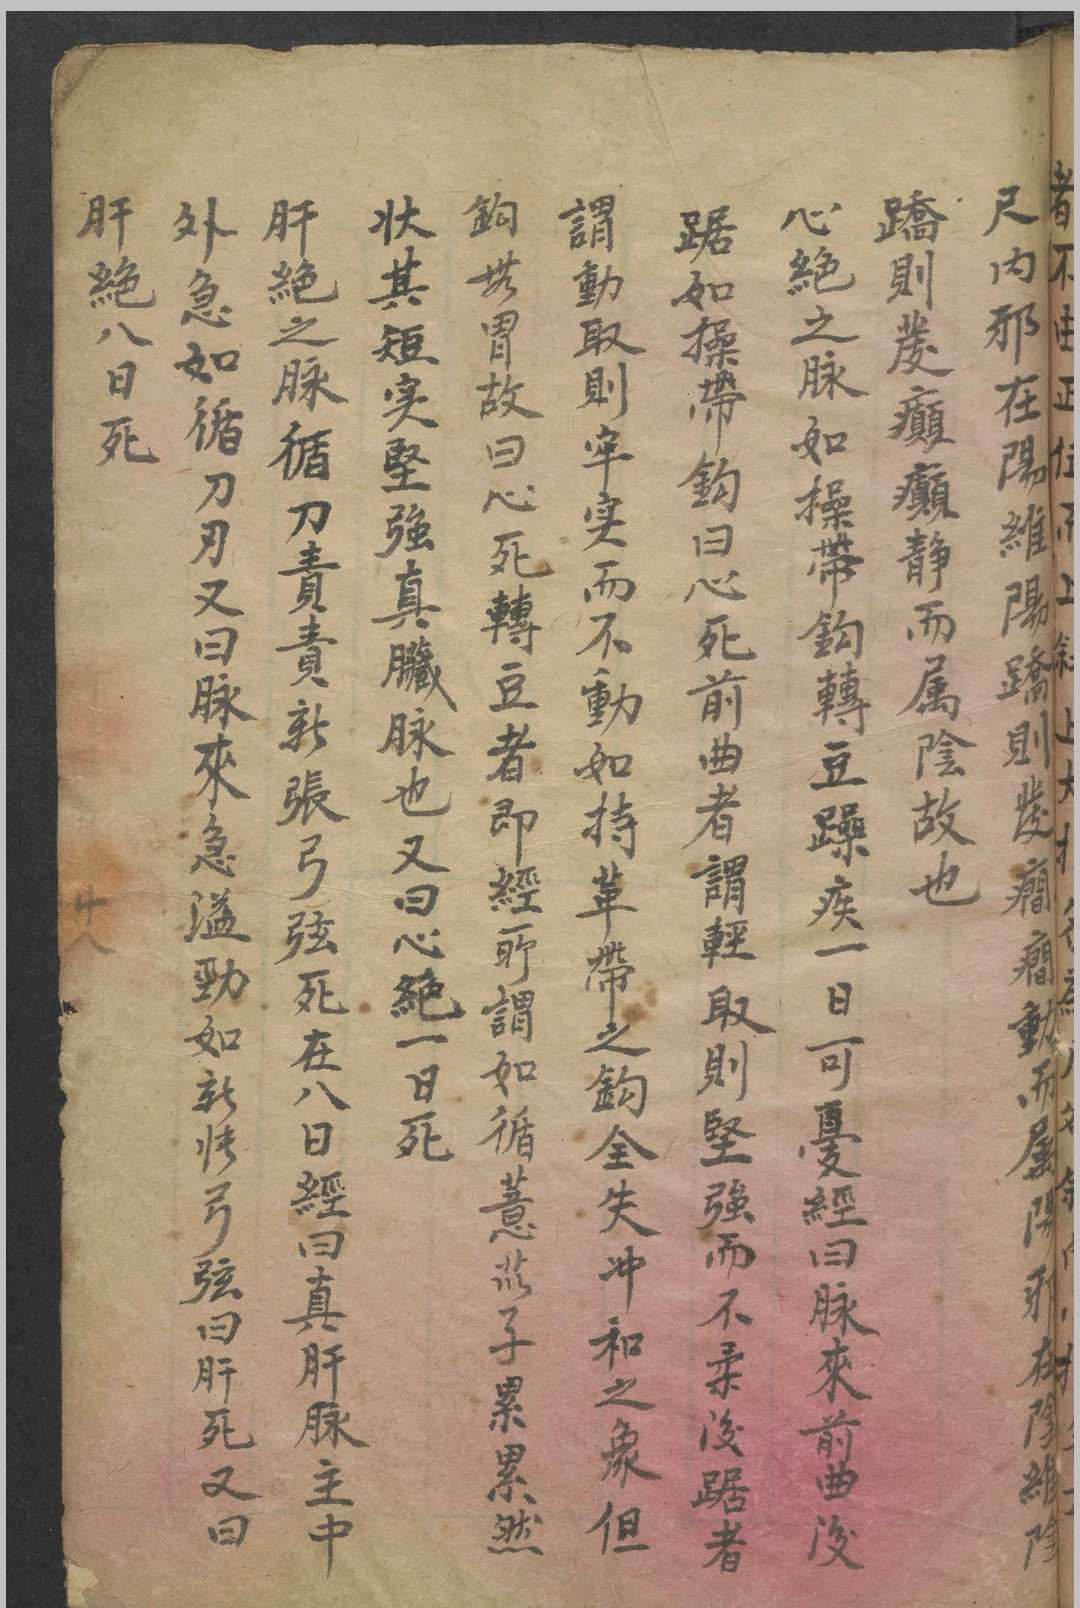 尺內邪在陽維陽蹻則發癇癇動而屬陽邪在陰維陰
蹻則發癲癲靜而属陰故也
心絕之脉如操帶鈎轉豆躁疾一日可憂經曰脉來前曲後
踞如操帶鈎曰心死前曲者謂輕取則堅強而不柔後踞者
謂動取則牢实而不動如持革帶之鈎全失冲和之象但
鈎无胃故曰心死轉豆者即經所謂如循薏苡子累累然
状其短实堅強真臟脉也又曰心絕一日死
肝絕之脉循刀責責新張弓弦死在八日經曰真肝脉主中
外急如循刀刃又曰脉來急溢勁如新张弓弦曰肝死又曰
肝絕八日死
十八